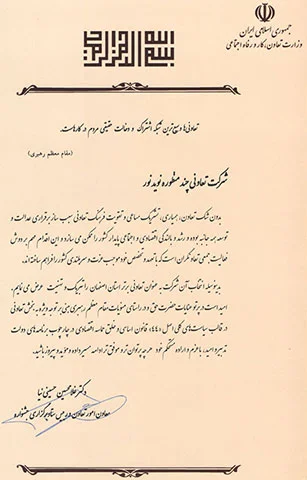 جمهوری اسلامی ایران
وزارت تعاون، کار و رفاه اجتماعی
بسم الله الرحمن الرحیم
تعاونی‌ها وسیع ترین شبکه اشتراک و دخالت حقیقی مردم در کارهاست.
(مقام معظم رهبری)
شرکت تعاونی چند منظوره نوید نور
بدون شک تعاون، همیاری، تشریک مساعی و تقویت فرهنگ تعاونی سبب ساز برقراری عدالت و
توسعه همه جانبه بوده و رشد و بالندگی اقتصادی و اجتماعی پایدار کشور را ممکن می سازد و این اقدام مهم بر دوش
فعالیت جمعی تعاونگران است که با تعهد و تخصص خود موجب عزت و سربلندی کشور را فراهم ساخته اند.
بدینوسیله انتخاب آن شرکت به عنوان تعاونی برتر استان اصفهان را تبریک و تهنیت عرض می نمایم.
امید است در پرتو عنایات حضرت حق و در راستای منویات مقام معظم رهبری مبنی بر توجه ویژه به بخش تعاونی
در قالب سیاست‌های کلی اصل (۴۴) قانون اساسی و خلق حماسه اقتصادی در چارچوب برنامه های دولت
تدبیر و امید، با عزم و اراده مستحکم خود هرچه پرتوان تر و موفق تر ادامه مسیر داده و مؤید و پیروز باشید.
دکتر غلامحسین حسینی نیا
معاون امور تعاون و رییس ستاد برگزاری جشنواره